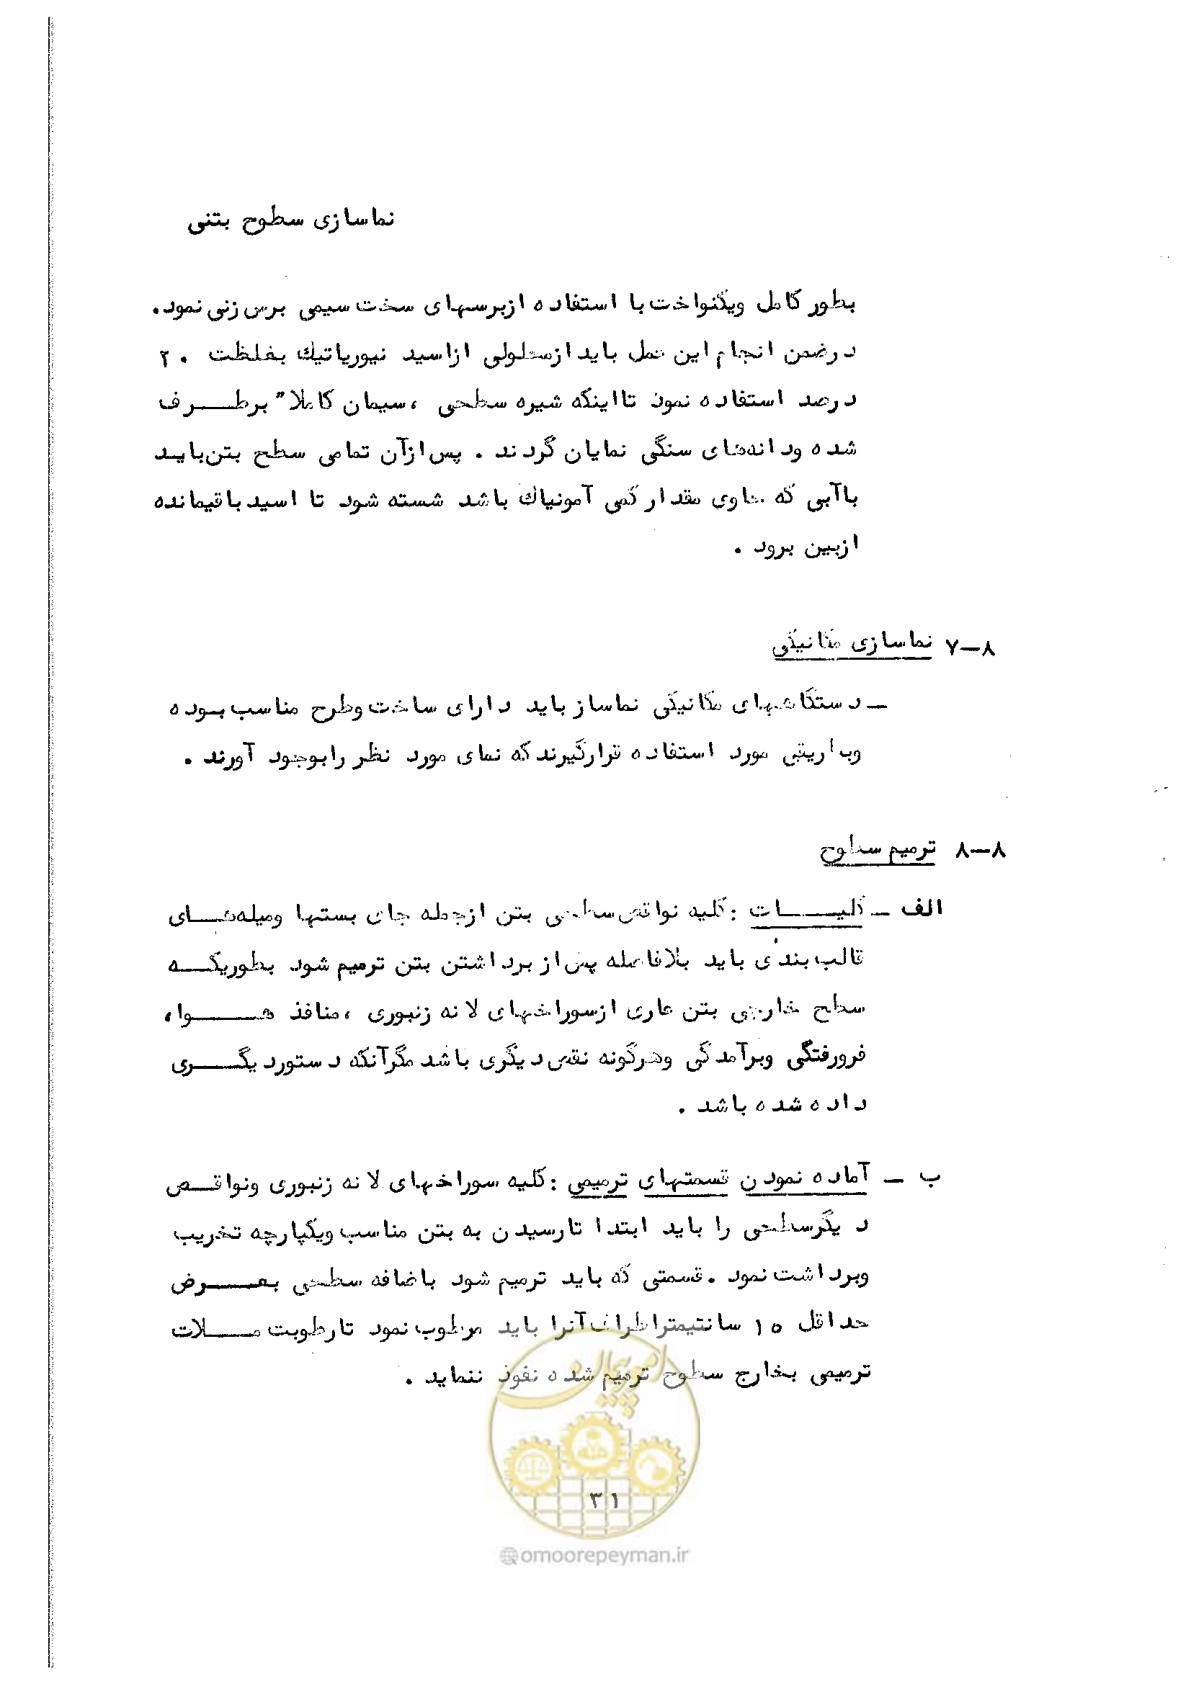 نماسازی سطوح بتنی
بطور کامل ویکنواخت با استفاده ازبرسهای سخت سیمی برس زنی نمود.
درضمن انجام این عمل باید ازمحلولی ازاسید نیوریاتیك بغلظت ۲۰
درصد استفاده نمود تااینکه شیره سطحی ، سیمان کاملا" برطرف
شده ودانه‌های سنگی نمایان گردند . پس ازآن تمامی سطح بتن باید
باآبی که حاوی مقدار کمی آمونیاك باشد شسته شود تا اسید باقیمانده
ازبین برود .
۸–۷ نماسازی مکانیکی
ــ دستگاههای مکانیکی نماساز باید دارای ساخت وطرح مناسب بوده
وبطریقی مورد استفاده قرارگیرند که نمای مورد نظر رابوجود آورند .
۸–۸ ترمیم سطوح
الف ــ کلیات : کلیه نواقص سطحی بتن ازجمله جای بستها ومیله‌های
قالب بندی باید بلافاصله پس از برداشتن بتن ترمیم شود بطوریکه
سطح خارجی بتن عاری ازسوراخهای لانه زنبوری ، منافذ هوا،
فرورفتگی وبرآمدگی وهرگونه نقص دیگری باشد مگرآنکه دستوردیگری
داده شده باشد .
ب ــ آماده نمودن قسمتهای ترمیمی : کلیه سوراخهای لانه زنبوری ونواقص
دیگرسطحی را باید ابتدا تارسیدن به بتن مناسب ویکپارچه تخریب
وبرداشت نمود . قسمتی که باید ترمیم شود باضافه سطحی بعرض
حداقل ۱۵ سانتیمتراطراف آنرا باید مرطوب نمود تارطوبت ملات
ترمیمی بخارج سطوح ترمیم شده نفوذ ننماید .
امور پیمان
۳۱
@omoorepeyman.ir